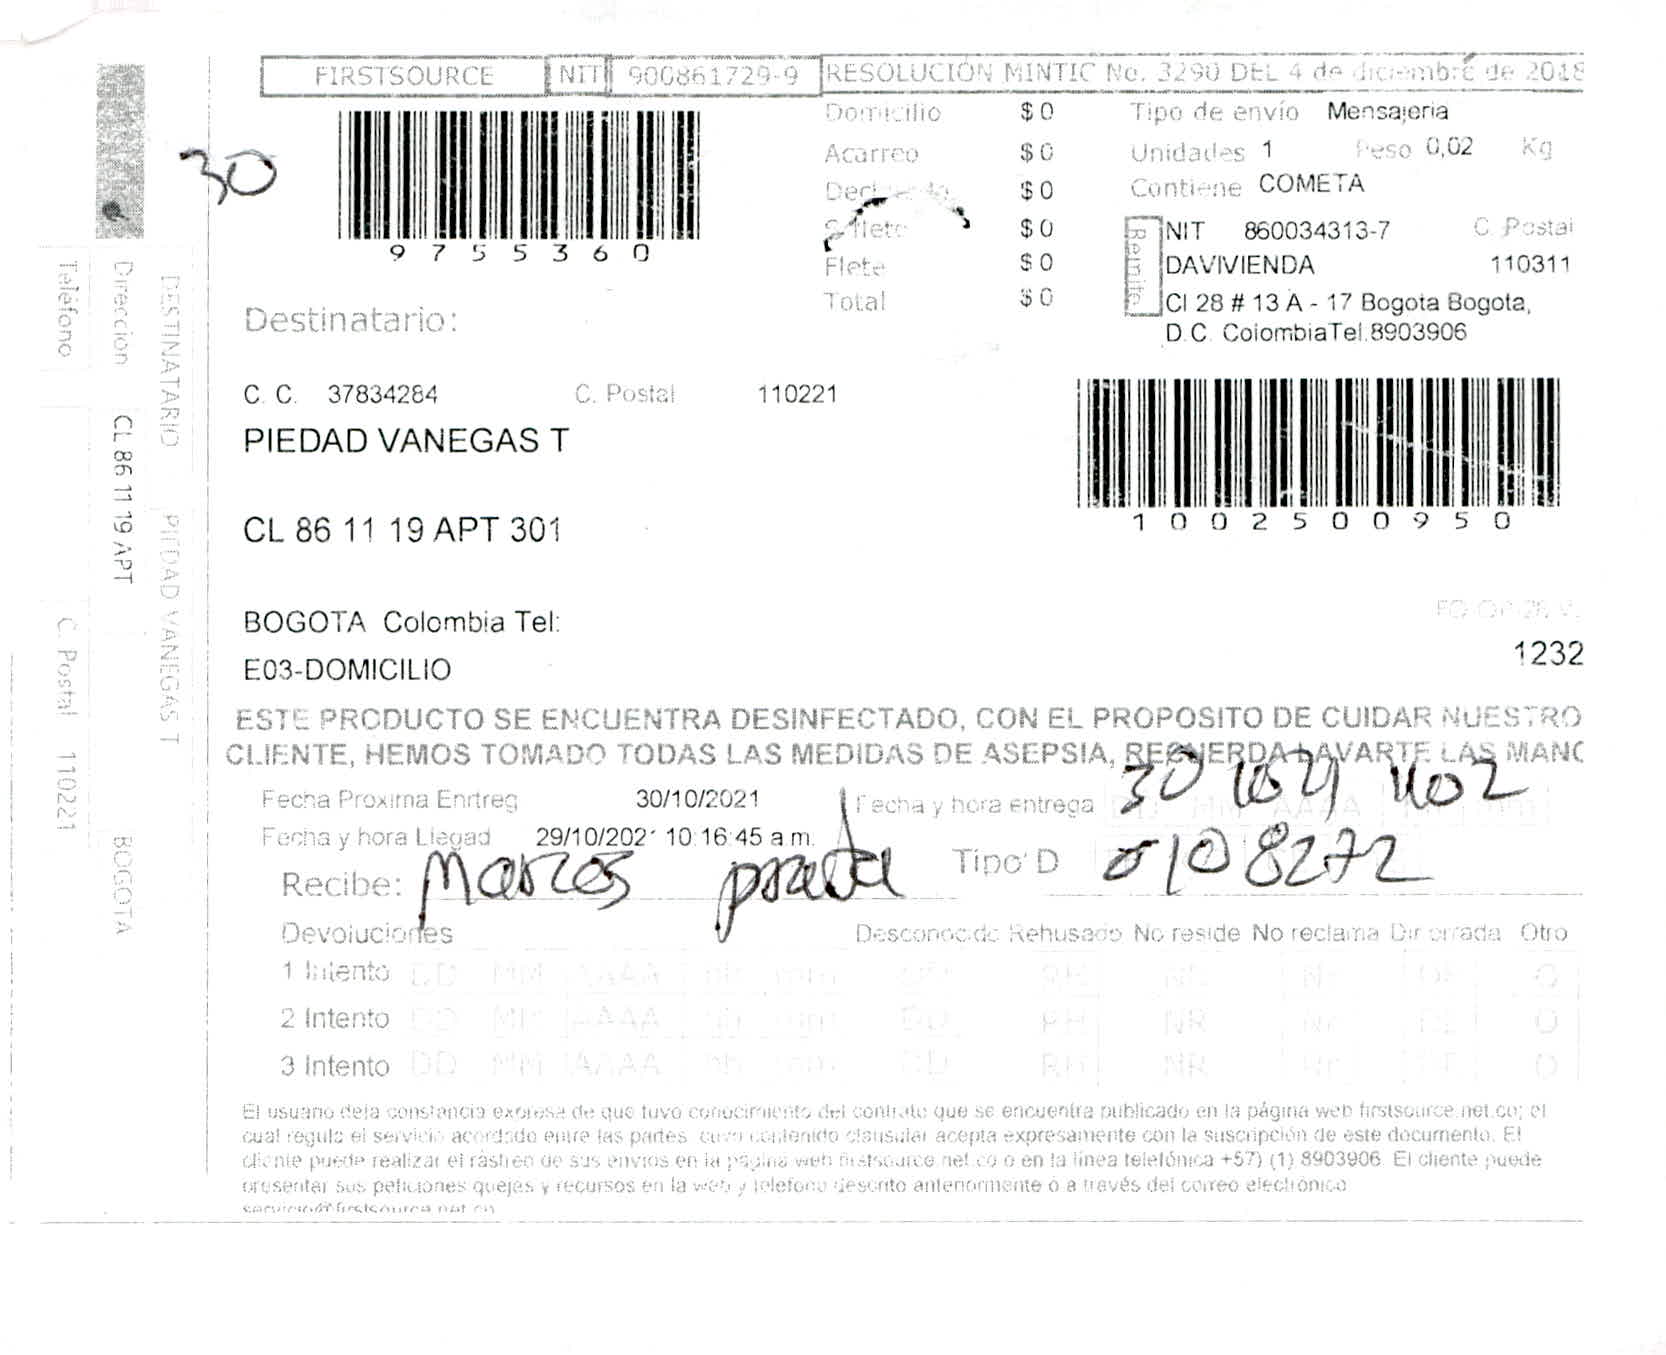 FIRSTSOURCE NIT 900861729-9 RESOLUCIÓN MINTIC No. 3290 DEL 4 de diciembre de 2018
30
9755360
Domicilio $ 0
Acarreo $ 0
$ 0
$ 0
Flete $ 0
Total $ 0
Tipo de envío Mensajeria
Unidades 1 Peso 0,02 Kg
Contiene COMETA
Remite
NIT 860034313-7 C. Postal
DAVIVIENDA 110311
Cl 28 # 13 A - 17 Bogota Bogota,
D.C. ColombiaTel.8903906
10025000950
Destinatario:
C. C. 37834284 C. Postal 110221
PIEDAD VANEGAS T
CL 86 11 19 APT 301
BOGOTA Colombia Tel:
E03-DOMICILIO
1232
ESTE PRODUCTO SE ENCUENTRA DESINFECTADO, CON EL PROPOSITO DE CUIDAR NUESTRO
CLIENTE, HEMOS TOMADO TODAS LAS MEDIDAS DE ASEPSIA, RECUERDA LAVARTE LAS MANO
Fecha Proxima Enrtreg 30/10/2021 Fecha y hora entrega 30
Fecha y hora Llegad 29/10/2021 10:16:45 a.m.
Recibe: Marcos Tipo D 0108272
Devoluciones Desconocido Rehusado No reside No reclama Dir errada Otro
1 Intento DD MM AAAA hh mm DD RH NR Nr DE O
2 Intento DD MM AAAA hh mm DD RH NR Nr DE O
3 Intento DD MM AAAA hh mm DD RH NR Nr DE O
El usuario deja constancia expresa de que tuvo conocimiento del contrato que se encuentra publicado en la página web firstsource.net.co; el
cual regula el servicio acordado entre las partes, cuyo contenido clausular acepta expresamente con la suscripción de este documento. El
cliente puede realizar el rastreo de sus envios en la página web firstsource.net.co o en la línea telefónica +57) (1) 8903906. El cliente puede
presentar sus peticiones quejas y recursos en la web y telefono descrito anteriormente o a través del correo electrónico
servicio@firstsource.net.co
DESTINATARIO PIEDAD VANEGAS T
Dirección CL 86 11 19 APT BOGOTA
Teléfono C. Postal 110221